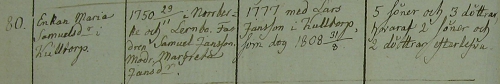 80.
Enkan Maria
Samuelsdr i
Kulltorp.
1750 29/ i Norrbec-
ke och Lernbo. Fa-
dren Samuel Jansson.
Modr. Margreta
Jansdr.
1777 med Lars
Jansson i Kulltorp.
som dog 1808 31/8
5 söner och 3 döttrar
hvaraf 2 söner och
2 döttrar efterlefva.